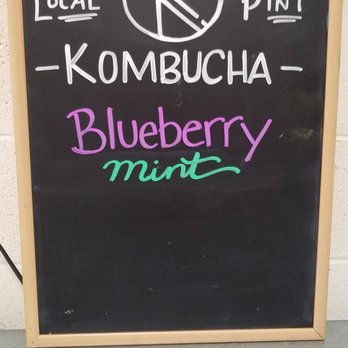 LOCAL PINT
-KOMBUCHA-
Blueberry
mint